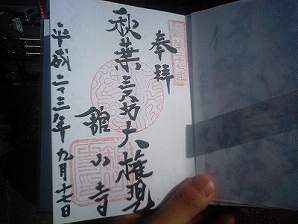 奉拝
秋葉三尺坊大権現
舘山寺
平成二十三年九月十七日